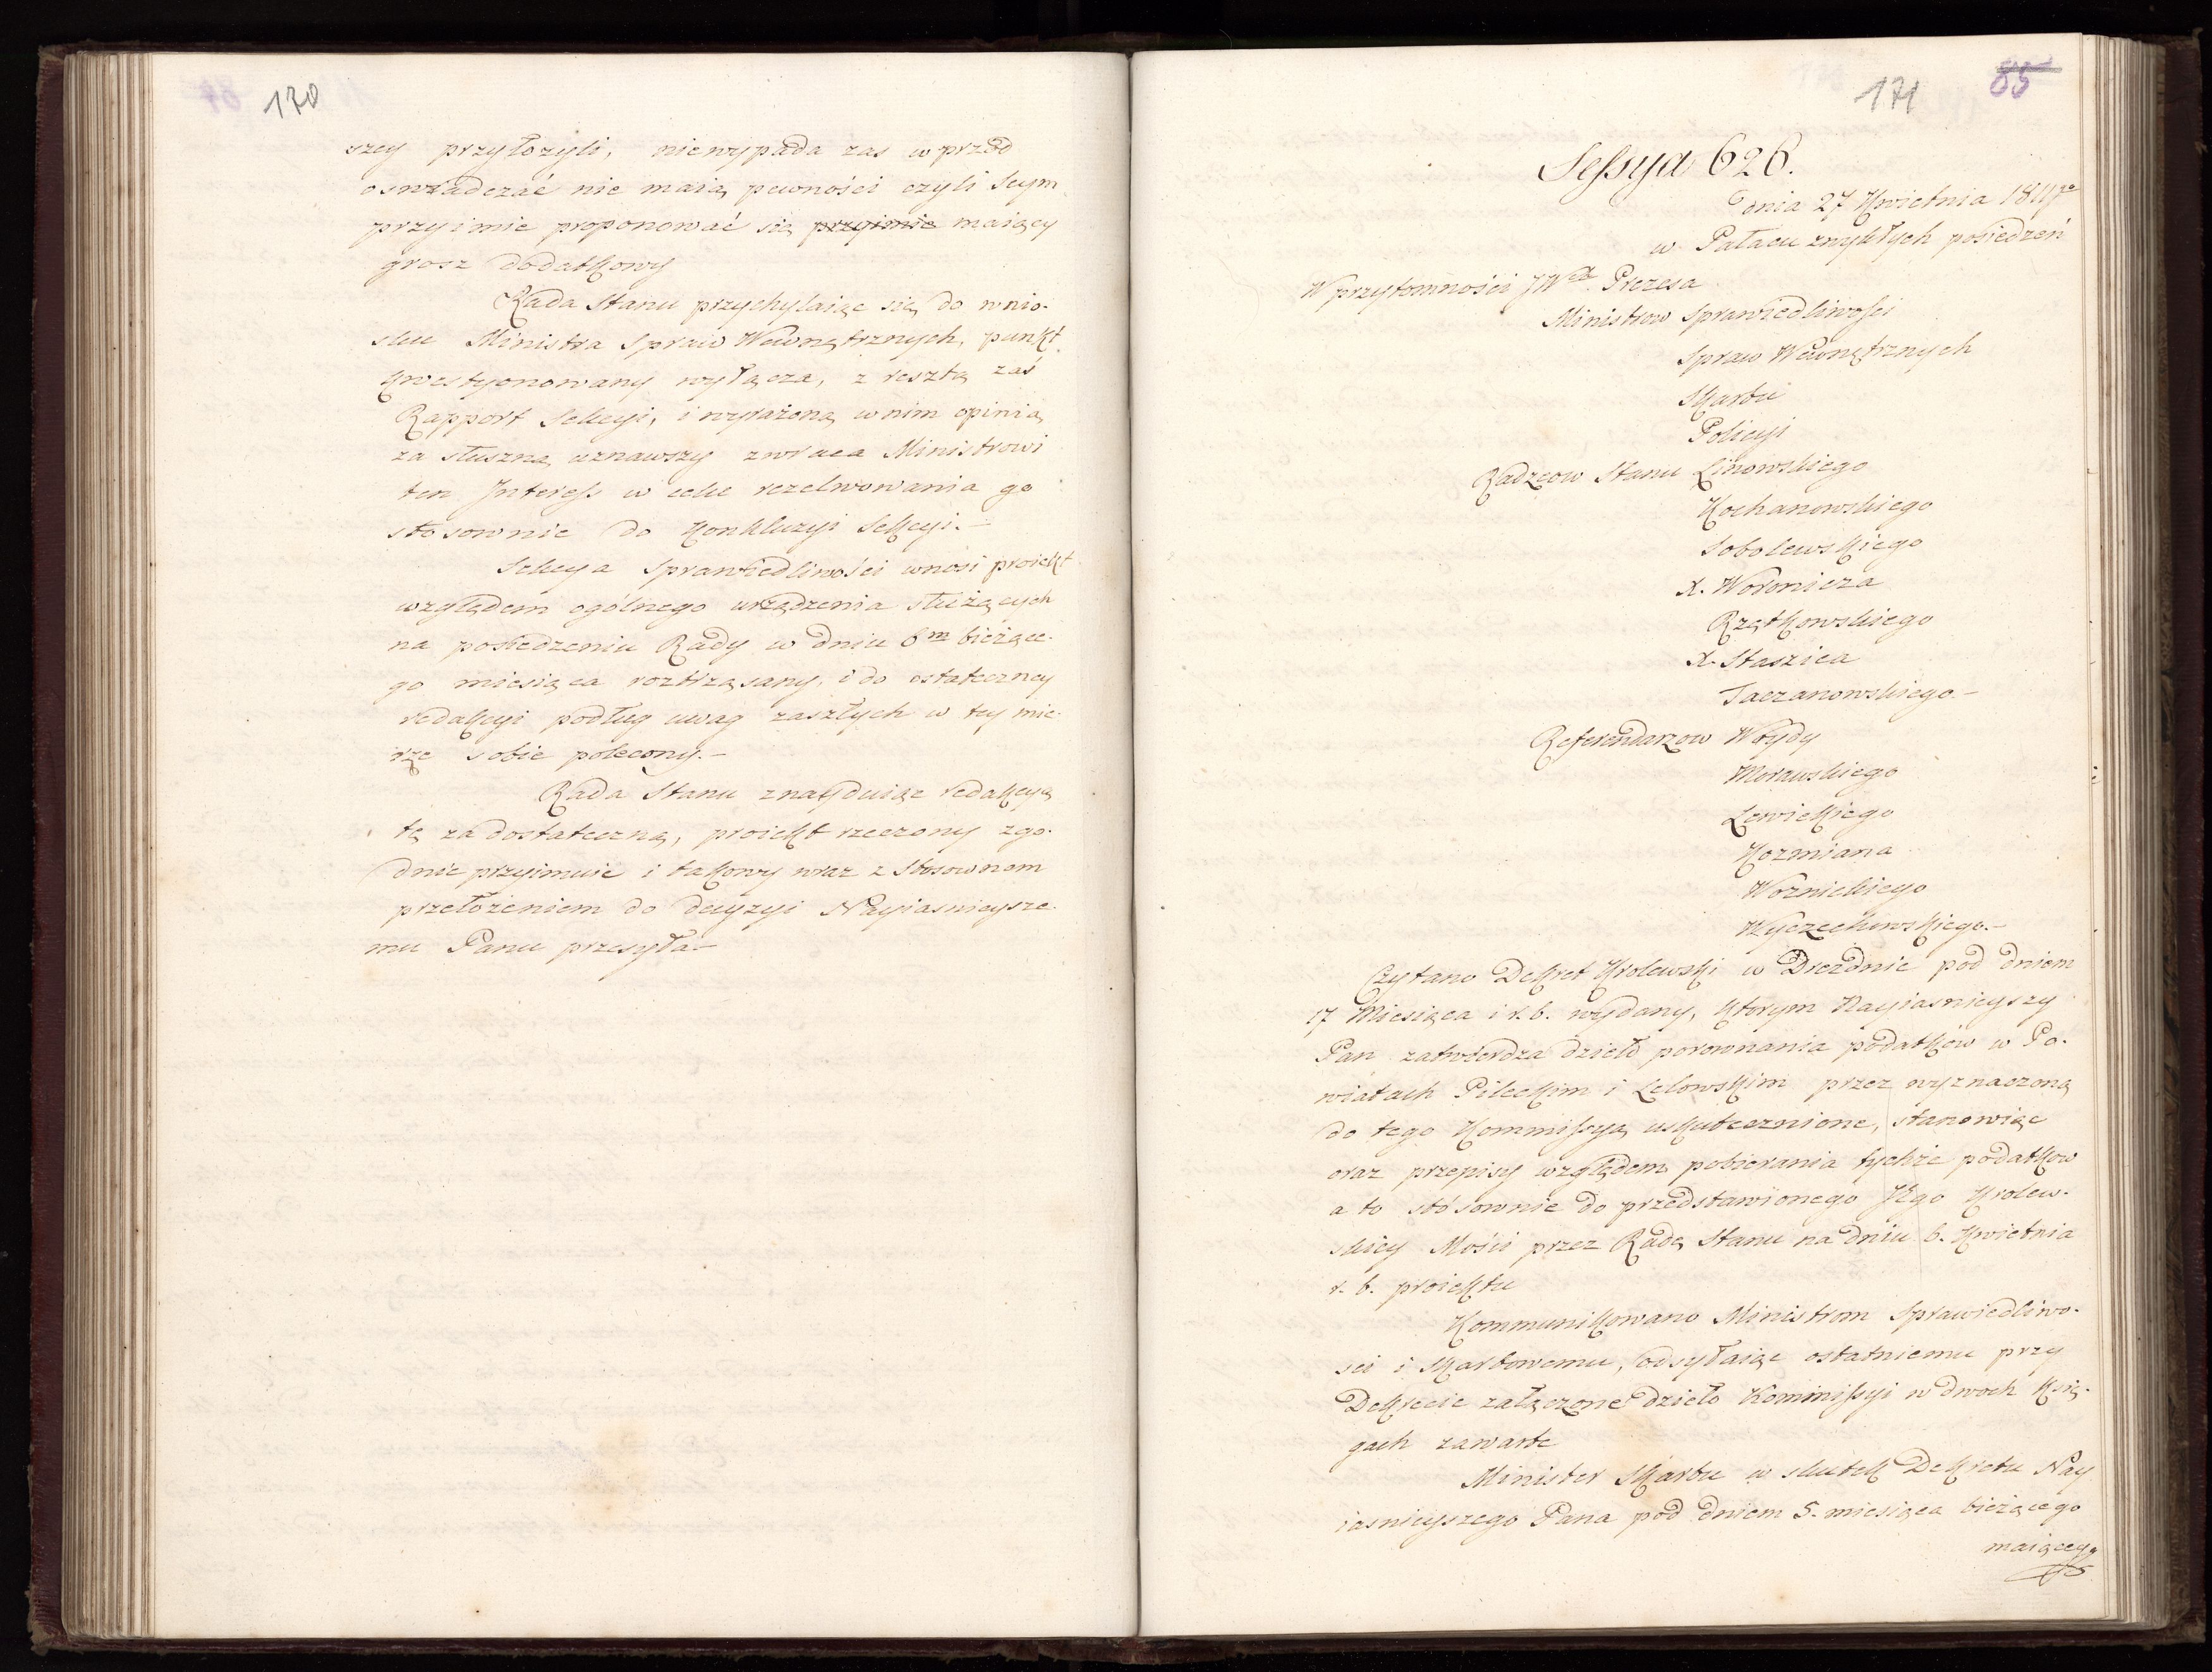 170
szey przyłożyli, niewypada zas w przód
oswiadczać nie maią pewności czyli Seym
przyimie proponować się przyimie maiący
grosz dodatkowy
Rada Stanu przychylaiąc się do wnio-
sku Ministra Spraw Wewnętrznych, punkt
kwestyonowany wyłącza, z resztą zaś
Rapport Sekcyi, i wyrażoną w nim opinią
za słuszną uznawszy zwraca Ministrowi
ten Interess w celu rezolwowania go
stosownie do Konkluzyi Sekcyi.-
Sekcya Sprawiedliwości wnosi proiekt
względem ogólnego urządzenia służących
na posiedzeniu Rady w dniu 6m bieżące-
go miesiąca roztrząsany, i do ostateczney
redakcyi podług uwag zaszłych w tey mie-
rze sobie polecony.-
Rada Stanu znayduiąc redakcyą
tę za dostateczną, proiekt rzeczony zgo-
dnie przyimuie i takowy wraz z stosownem
przełożeniem do decyzyi Nayiasnieysze-
mu Panu przesyła-
171 85
Sessya 626.
dnia 27 Kwietnia 1811go
w Pałacu zwykłych posiedzeń
W przytomności JWo. Prezesa
Ministrow Sprawiedliwosci
Spraw Wewnętrznych
Skarbu
Policyi
Radzcow Stanu Linowskiego
Kochanowskiego
Sobolewskiego
X. Woronicza
Rzętkowskiego
X. Staszica
Taczanowskiego.-
Referendarzow Woydy
Morawskiego
Lewickiego
Kozmiana
Woznickiego
Wyczechowskiego.-
Czytano Dekret Krolewski w Dreznie pod dniem
17 Miesiąca i r. b. wydany, ktorym Nayiasnieyszy
Pan zatwierdza dzieło porownania podatków w Po-
wiatach Pileckim i Lelowskim przez wyznaczoną
do tego Kommissyą uskutecznione, stanowiąc
oraz przepisy względem pobierania tychże podatkow
a to stósownie do przedstawionego JKgo Krolew-
skiey Mości przez Radę Stanu na dniu 6. Kwietnia
r. b. proiektu
Kommunikowano Ministrom Sprawiedliwo-
sci i Skarbowemu, odsyłaiąc ostatniemu przy
Dekrecie załączone dzieło Kommissyi w dwoch Księ-
gach zawarte
Minister Skarbu w skutek Dekretu Nay
iasnieyszego Pana pod dniem 5. miesiąca bieżącego
maiącego